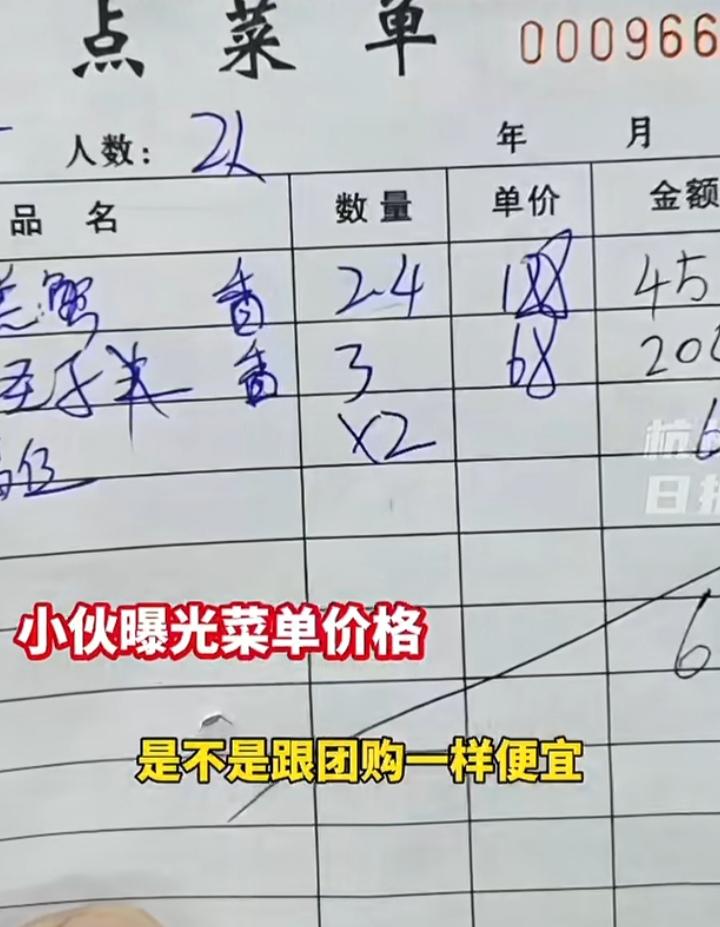 点菜单 000966
人数: 2人 年 月
品名 数量 单价 金额
蟹 香 2.4 188 45
王子米 香 3 68 20
位 x2 6
6
小伙曝光菜单价格
是不是跟团购一样便宜